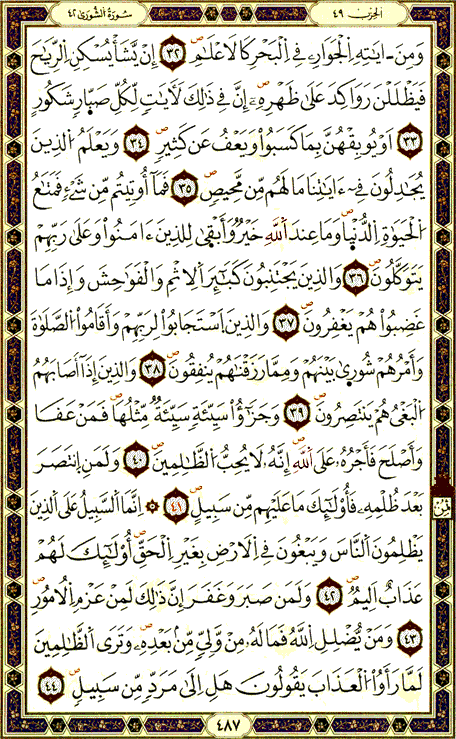 سُورَةُ الشُّورَىٰ ٤٢
الحزب ٤٩
وَمِنَ ـايَٰتِهِ اِلْجَوَارِۦ فِے اِلْبَحْرِ كَالَاعْلَٰمِ ٣٢ إِنْ يَّشَأْ يُسْكِنِ اِلرِّيَٰحَ
فَيَظْلَلْنَ رَوَاكِدَ عَلَىٰ ظَهْرِهِۦٓ إِنَّ فِے ذَٰلِكَ لَأٓيَٰتٍ لِّكُلِّ صَبّ۪ارٍ شَكُورٍ
٣٣ اَوْ يُوبِقْهُنَّ بِمَا كَسَبُواْ وَيَعْفُ عَن كَثِيرٍ ٣٤ وَيَعْلَمُ اُلذِينَ
يُجَٰدِلُونَ فِےٓ ءَايَٰتِنَا مَا لَهُم مِّن مَّحِيصٍ ٣٥ فَمَآ أُوتِيتُم مِّن شَےْءٍ فَمَتَٰعُ
اُلْحَيَوٰةِ اِلدُّنْي۪ا وَمَا عِندَ اَللَّهِ خَيْرٌ وَأَبْقَىٰ لِلذِينَ ءَامَنُواْ وَعَلَىٰ رَبِّهِمْ
يَتَوَكَّلُونَ ٣٦ وَالذِينَ يَجْتَنِبُونَ كَبَٰٓئِرَ اَلِاثْمِ وَالْفَوَٰحِشَ وَإِذَا مَا
غَضِبُواْ هُمْ يَغْفِرُونَ ٣٧ وَالذِينَ اَسْتَجَابُواْ لِرَبِّهِمْ وَأَقَامُواْ اُلصَّلَوٰةَ
وَأَمْرُهُمْ شُور۪ىٰ بَيْنَهُمْ وَمِمَّا رَزَقْنَٰهُمْ يُنفِقُونَ ٣٨ وَالذِينَ إِذَآ أَصَابَهُمُ
اُلْبَغْيُ هُمْ يَنتَصِرُونَ ٣٩ وَجَزَٰٓؤُاْ سَيِّئَةٍ سَيِّئَةٌ مِّثْلُهَا فَمَنْ عَفَا
وَأَصْلَحَ فَأَجْرُهُۥ عَلَى اَللَّهِ إِنَّهُۥ لَا يُحِبُّ اُلظَّٰلِمِينَ ٤٠ وَلَمَنِ اِنتَصَرَ
بَعْدَ ظُلْمِهِۦ فَأُوْلَٰٓئِكَ مَا عَلَيْهِم مِّن سَبِيلٍ ٤١ ۞ إِنَّمَا اَلسَّبِيلُ عَلَى اَلذِينَ
يَظْلِمُونَ اَلنَّاسَ وَيَبْغُونَ فِے اِلَارْضِ بِغَيْرِ اِلْحَقِّ أُوْلَٰٓئِكَ لَهُمْ
عَذَابٌ اَلِيمٌ ٤٢ وَلَمَن صَبَرَ وَغَفَرَ إِنَّ ذَٰلِكَ لَمِنْ عَزْمِ اِلُامُورِ
٤٣ وَمَنْ يُّضْلِلِ اِللَّهُ فَمَا لَهُۥ مِنْ وَّلِيٍّ مِّنۢ بَعْدِهِۦ وَتَرَى اَلظَّٰلِمِينَ
لَمَّا رَأَوُاْ اُلْعَذَابَ يَقُولُونَ هَلِ اِلَىٰ مَرَدٍّ مِّن سَبِيلٍ ٤٤
ثمن
٤٨٧